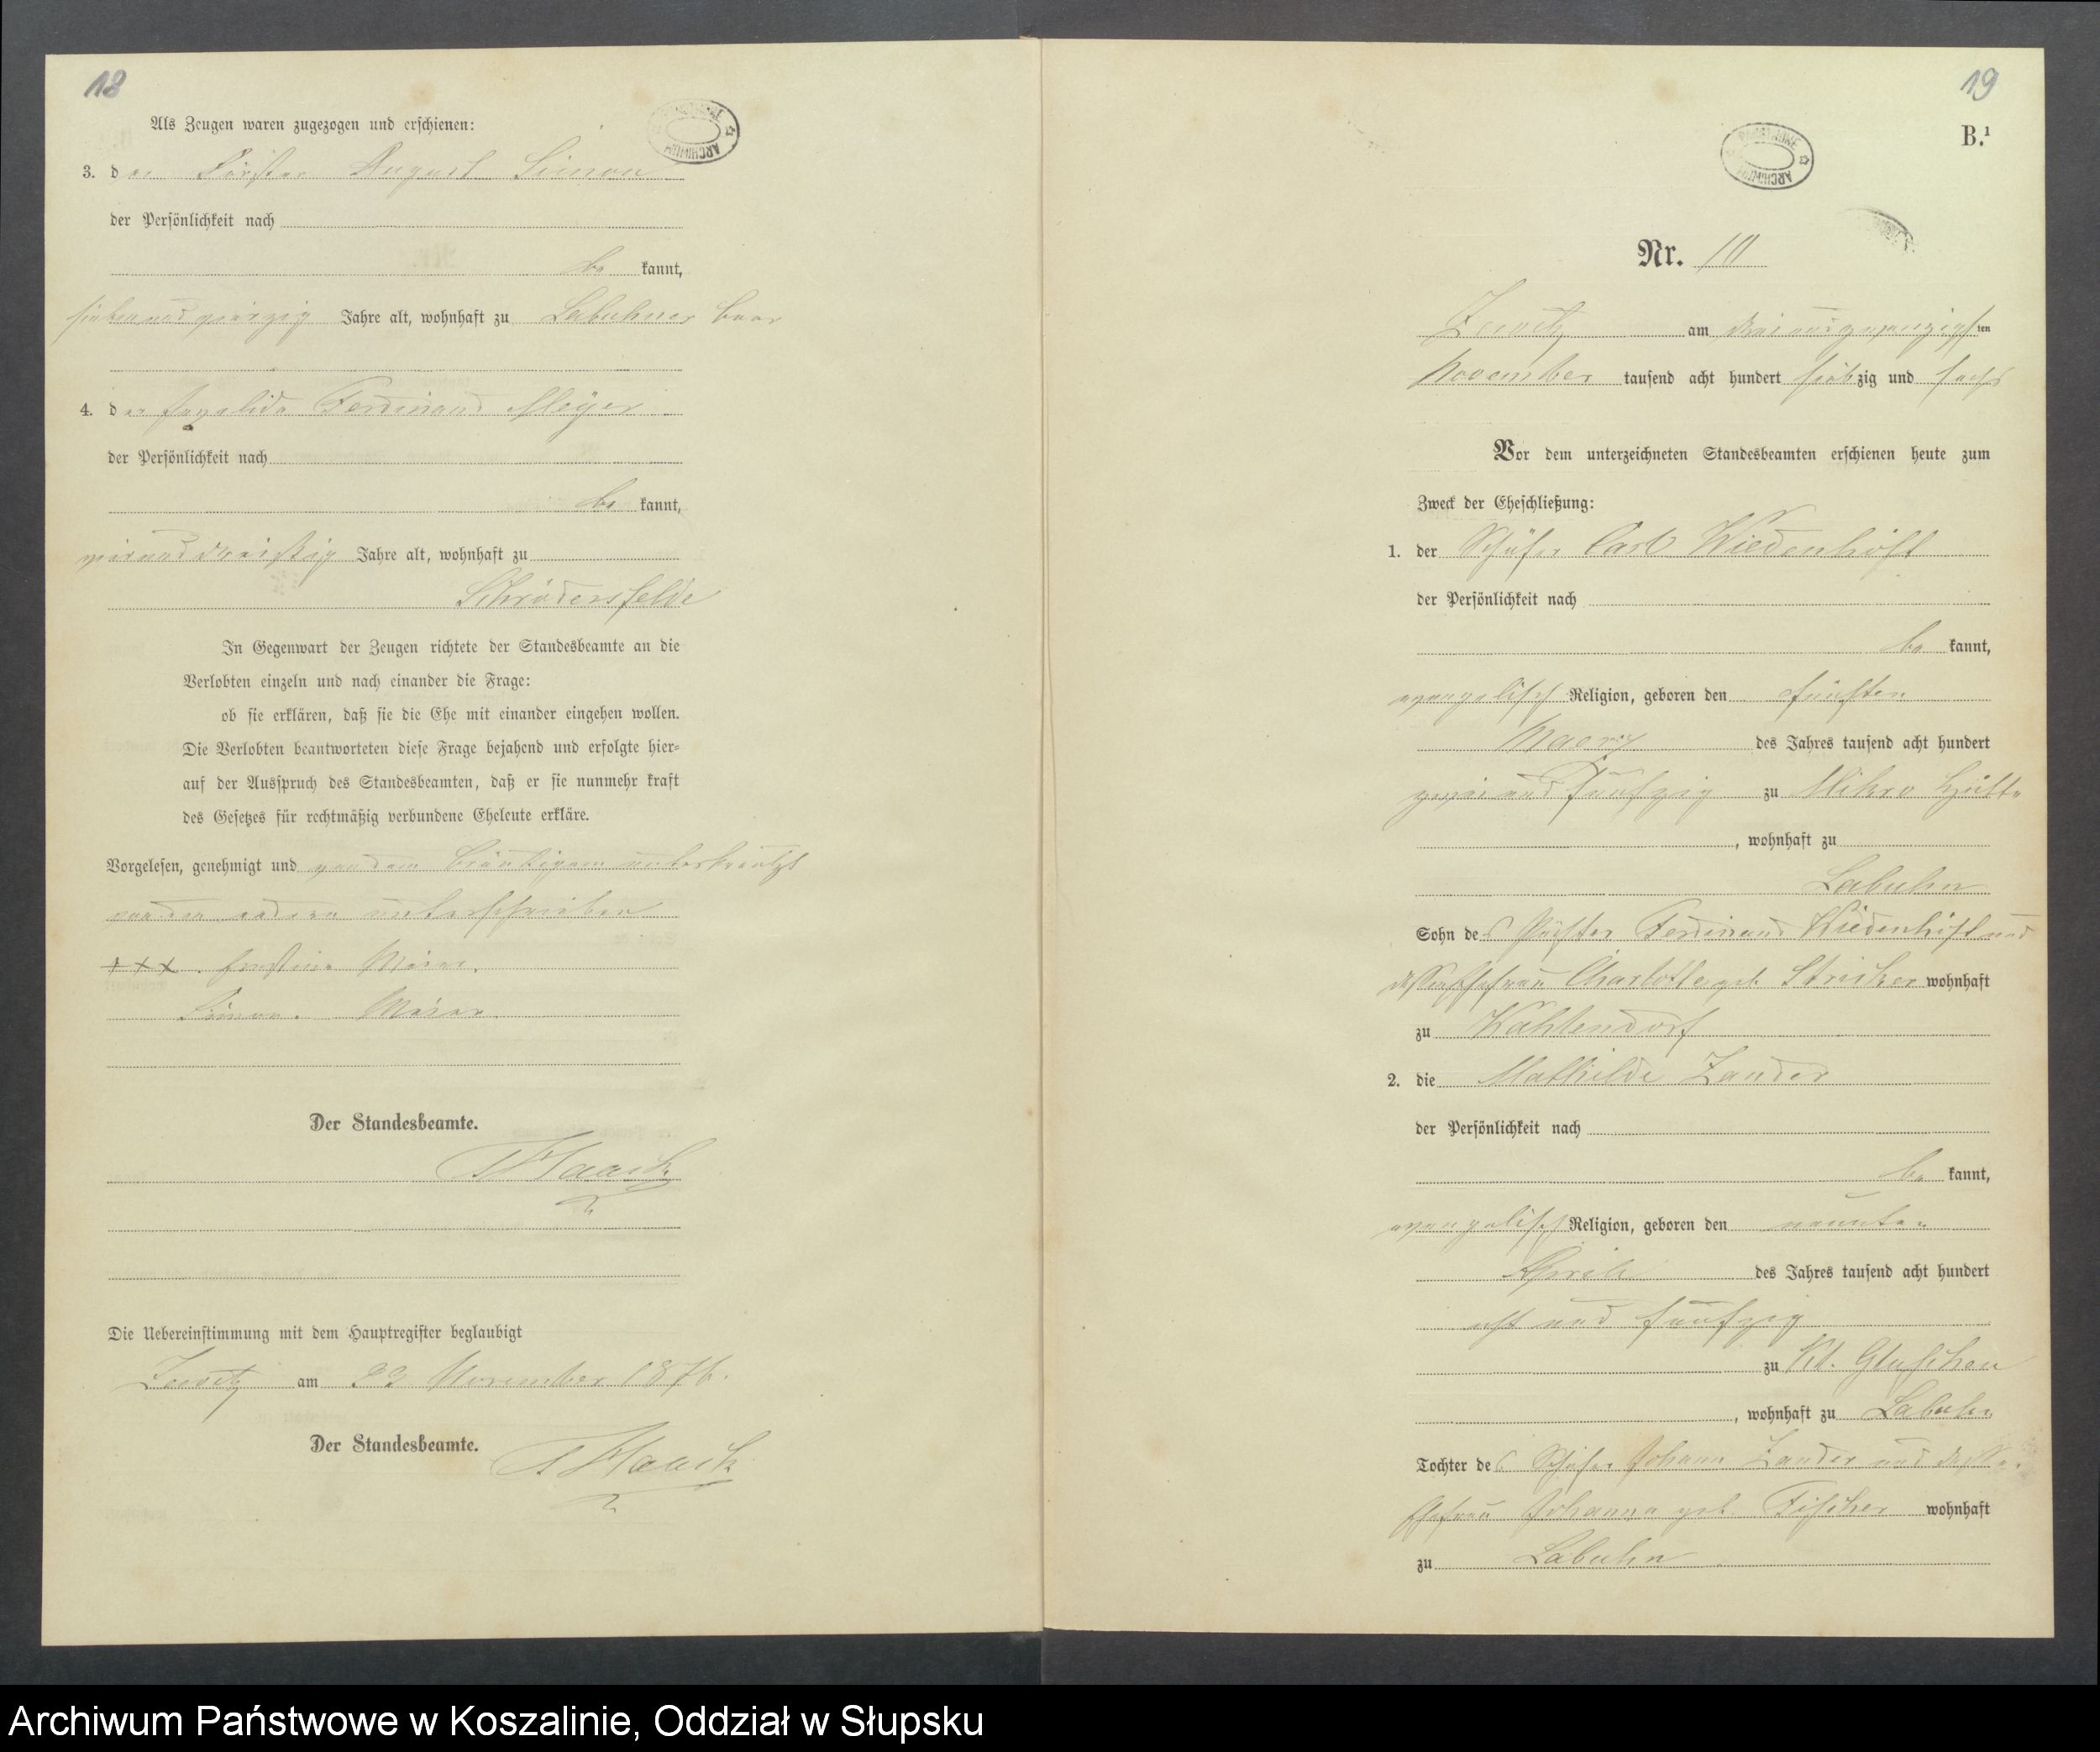 18
Als Zeugen waren zugezogen und erschienen:
3. der Förster August Simon
der Persönlichkeit nach
be kannt,
siebenundvierzig Jahre alt, wohnhaft zu Labuhner
4. der Invalide Ferdinand Meyer
der Persönlichkeit nach
be kannt,
vierunddreißig Jahre alt, wohnhaft zu
Schrödersfelde
In Gegenwart der Zeugen richtete der Standesbeamte an die
Verlobten einzeln und nach einander die Frage:
ob sie erklären, daß sie die Ehe mit einander eingehen wollen.
Die Verlobten beantworteten diese Frage bejahend und erfolgte hier-
auf der Ausspruch des Standesbeamten, daß er sie nunmehr kraft
des Gesetzes für rechtmäßig verbundene Eheleute erkläre.
Vorgelesen, genehmigt und von dem Bräutigam unterkreuzt
von den andern unterschrieben
+++. Ernstine
Simon.
Der Standesbeamte.
Haack
Die Uebereinstimmung mit dem Hauptregister beglaubigt
Zewitz am 23 November 1876.
Der Standesbeamte.
Haack
19
B.¹
ARCHIWUM
Nr. 10
Zewitz am dreiundzwanzigsten
November tausend acht hundert siebzig und sechs
Vor dem unterzeichneten Standesbeamten erschienen heute zum
Zweck der Eheschließung:
1. der Schäfer Carl Wiedenhöft
der Persönlichkeit nach
be kannt,
evangelisch Religion, geboren den fünften
Maerz des Jahres tausend acht hundert
zwei und fünfzig zu Mikro Hütte
, wohnhaft zu
Labuhn
Sohn des Pächter Ferdinand Wiedenhöft und
dessen Ehefrau Charlotte geb. Stricker wohnhaft
zu Wahlendorf
2. die Mathilde Zander
der Persönlichkeit nach
be kannt,
evangelisch Religion, geboren den neunten
April des Jahres tausend acht hundert
acht und fünfzig
zu Kl. Gluschen
, wohnhaft zu Labuhn
Tochter des Schäfer Johann Zander und dessen
Ehefrau Johanna geb. Fischer wohnhaft
zu Labuhn
Archiwum Państwowe w Koszalinie, Oddział w Słupsku